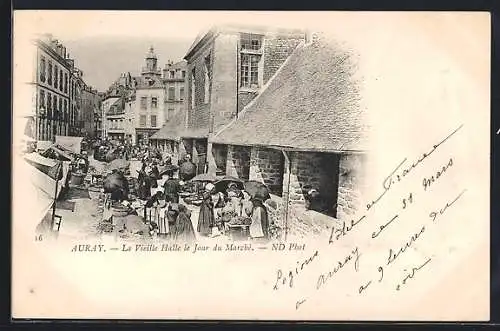 16
AURAY. — La Vieille Halle le Jour du Marché. — ND Phot
Logions hôtel de France
à Auray ce 31 mars
à 9 heures du
soir